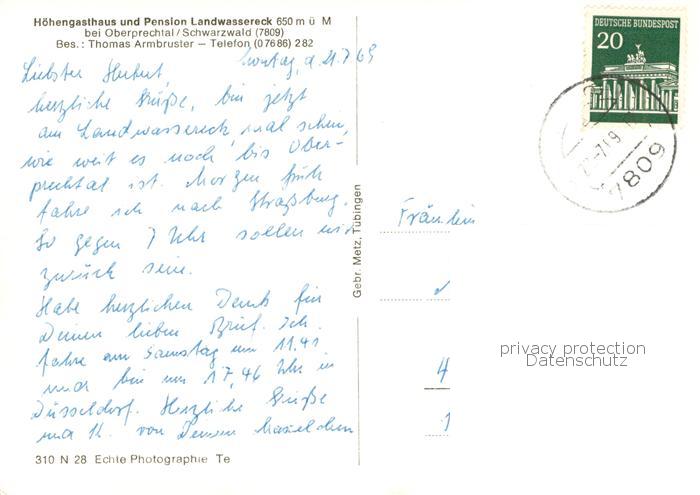 Höhengasthaus und Pension Landwassereck 650 m ü M
bei Oberprechtal / Schwarzwald (7809)
Bes.: Thomas Armbruster — Telefon (07686) 282
DEUTSCHE BUNDESPOST
20
7809
Sonntag, d. 21.7.69
Liebster Herbert,
herzliche Grüße, bin jetzt
am Landwassereck, mal sehn,
wie weit es noch bis Ober-
prechtal ist. Morgen früh
fahre ich nach Straßburg.
So gegen 7 Uhr sollen wir
zurück sein.
Habe herzlichen Dank für
Deinen lieben Brief. Ich
fahre am Samstag um 11.41
und bin um 17,46 Uhr in
Düsseldorf. Herzliche Grüße
und K. von Deinem
Fräulein
4
Gebr. Metz, Tübingen
privacy protection
Datenschutz
310 N 28 Echte Photographie Te